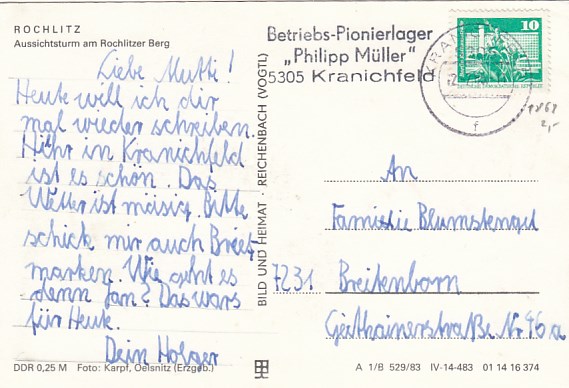 ROCHLITZ
Aussichtsturm am Rochlitzer Berg
Liebe Mutti!
Heute will ich dir
mal wieder schreiben.
Hihr in Kranichfeld
ist es schön. Das
Wetter ist mäsig. Bitte
schick mir auch Brief-
marken. Wie geht es
denn Jan? Das wars
für Heute.
Dein Holger
DDR 0,25 M Foto: Karpf, Oelsnitz (Erzgeb.)
BILD UND HEIMAT REICHENBACH (VOGTL)
Betriebs-Pionierlager
„Philipp Müller“
5305 Kranichfeld
10
DEUTSCHE DEMOKRATISCHE REPUBLIK
f
2,-
An
Familie Blumstengel
7231 Breitenborn
Geithainerstraße Nr 46a
A 1/B 529/83 IV-14-483 01 14 16 374